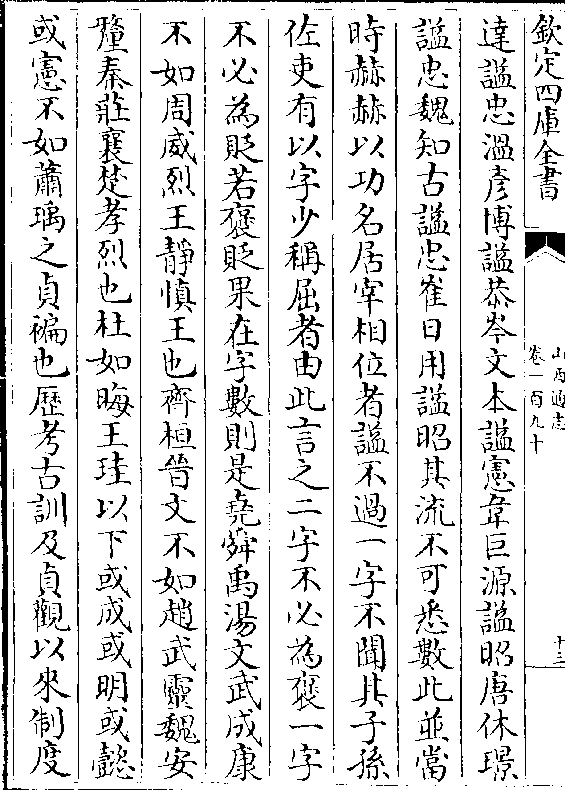 欽定四庫全書
山西通志
卷一百九十
十三
達諡忠溫彥博諡恭岑文本諡憲韋巨源諡昭唐休璟
諡忠魏知古諡忠崔日用諡昭其流不可悉數此並當
時赫赫以功名居宰相位者諡不過一字不聞其子孫
佐吏有以字少稱屈者由此言之二字不必為褒一字
不必為貶若褒貶果在字數則是堯舜禹湯文武成康
不如周威烈王靜慎王也齊桓晉文不如趙武靈魏安
釐秦莊襄楚孝烈也杜如晦王珪以下或成或明或懿
或憲不如蕭瑀之貞褊也歷考古訓及貞觀以來制度